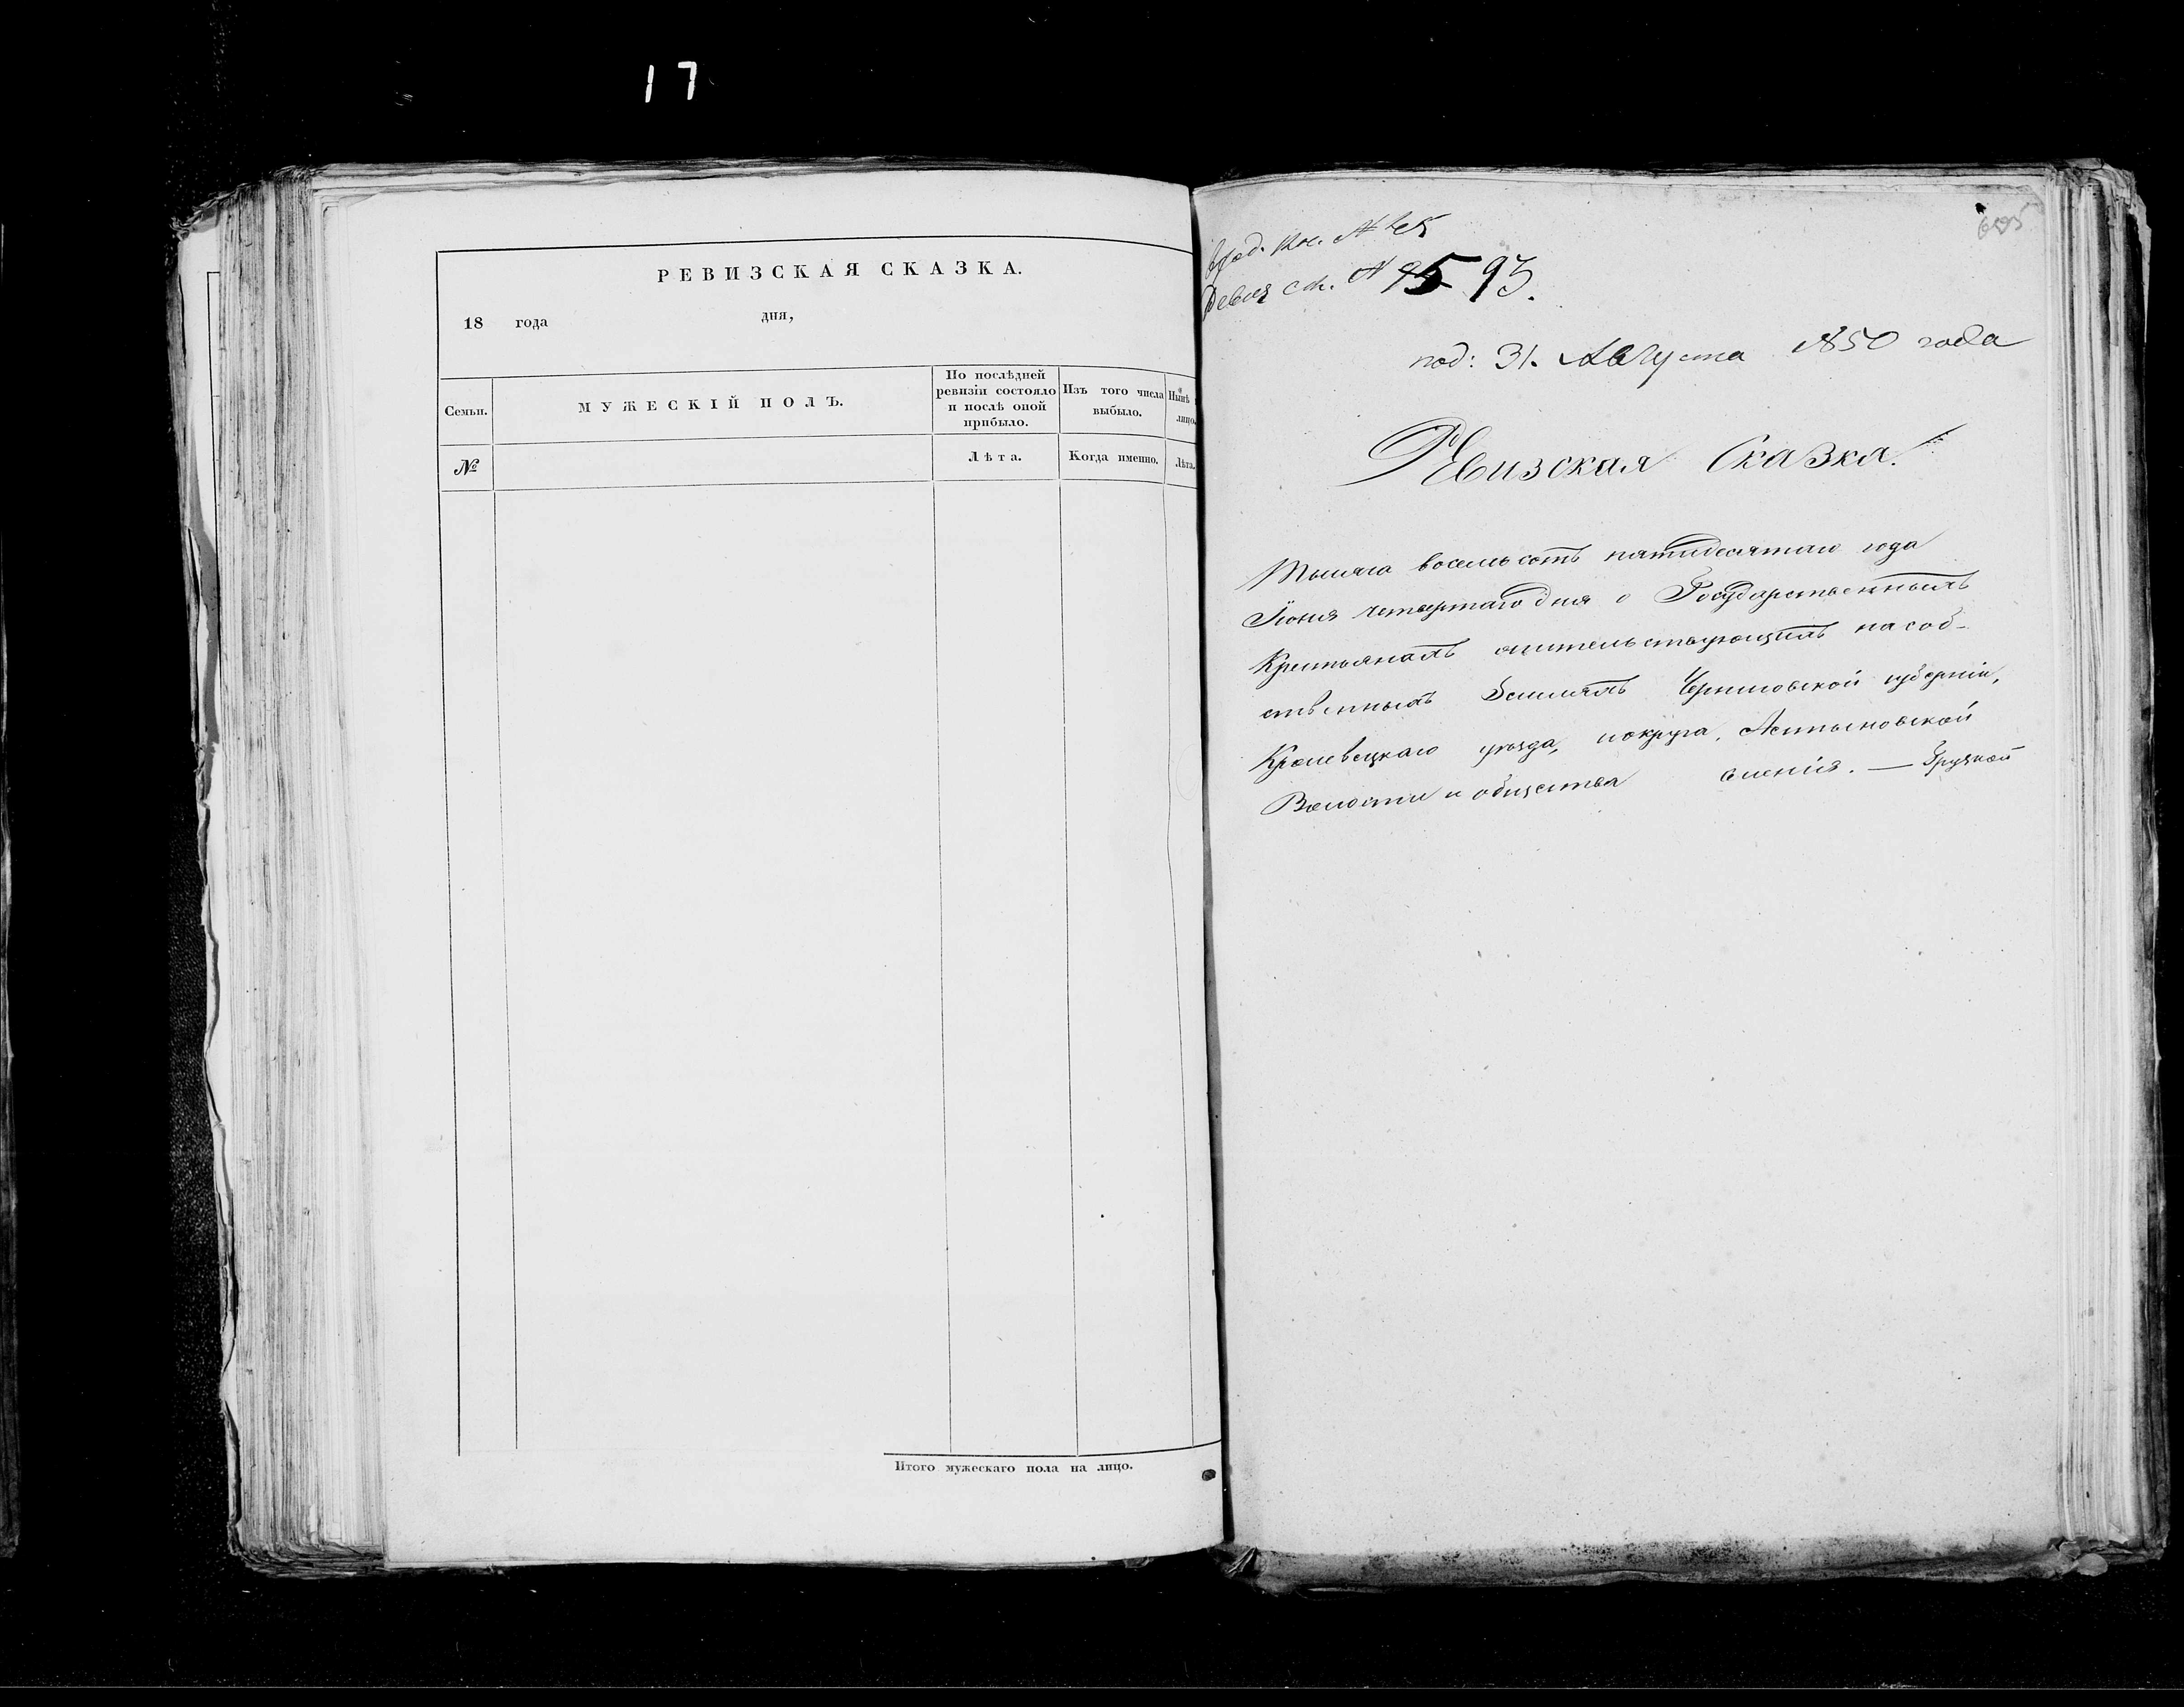 17
РЕВИЗСКАЯ СКАЗКА.
18 года дня,
Семьи.
МУЖЕСКІЙ ПОЛЪ.
По послѣдней
ревизіи состояло
и послѣ оной
прибыло.
Изъ того числа
выбыло.
Нынѣ
лицо.
№
Лѣта.
Когда именно.
Лѣта.
Итого мужескаго пола на лицо.
695
№ 45
№ 95 93.
под: 31. Августа 1850 года
Ревизская Сказка.
Тысяча восемьсотъ пятидесятаго года
Іюня четвертаго дня о Государственныхъ
Крестьянахъ жительствующихъ на соб-
ственныхъ Земляхъ Черниговской губерніи,
Кролевецкаго уѣзда, и округа,
Волости и общества селенія. — Грузкой